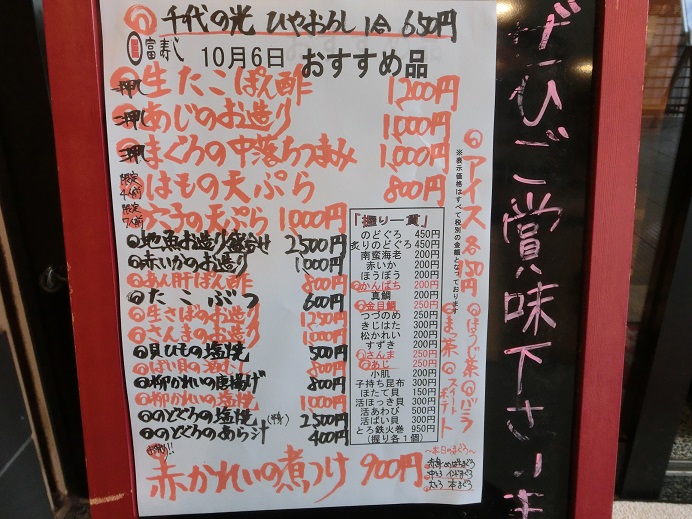 千代の光 ひやおろし 1合 650円
富寿し 10月6日 おすすめ品
押し 生たこぽん酢 1,200円
押し あじのお造り 1,000円
押し まぐろの中落ちつまみ 1,000円
限定4個 はもの天ぷら 800円
限定7個 穴子の天ぷら 1000円
地魚お造り盛合せ 2500円
赤いかのお造り 1,000円
あん肝ぽん酢 800円
たこぶつ 600円
生さばのお造り 1250円
さんまのお造り 1000円
貝ひもの塩焼 500円
ばい貝の煮付 800円
柳かれいの唐揚げ 800円
柳かれいの塩焼 1000円
のどぐろの塩焼 2500円
のどぐろのあら汁 400円
赤かれいの煮つけ 900円
「握り一貫」
のどぐろ 450円
炙りのどぐろ 450円
南蛮海老 200円
赤いか 200円
ほうぼう 200円
かんぱち 200円
真鯛 200円
金目鯛 250円
つづのめ 250円
きじはた 300円
松かれい 200円
すずき 200円
さんま 250円
あじ 250円
小肌 200円
子持ち昆布 300円
ほたて貝 150円
活ほっき貝 300円
活あわび 500円
活ばい貝 300円
とろ鉄火巻 950円
(握り各1個)
〜本日のまぐろ〜
大とろ 本まぐろ
アイス各150円
※表示価格はすべて税別の金額となっております
ほうじ茶 バニラ
まっ茶 スイートポテト
ぜひご賞味下さいませ